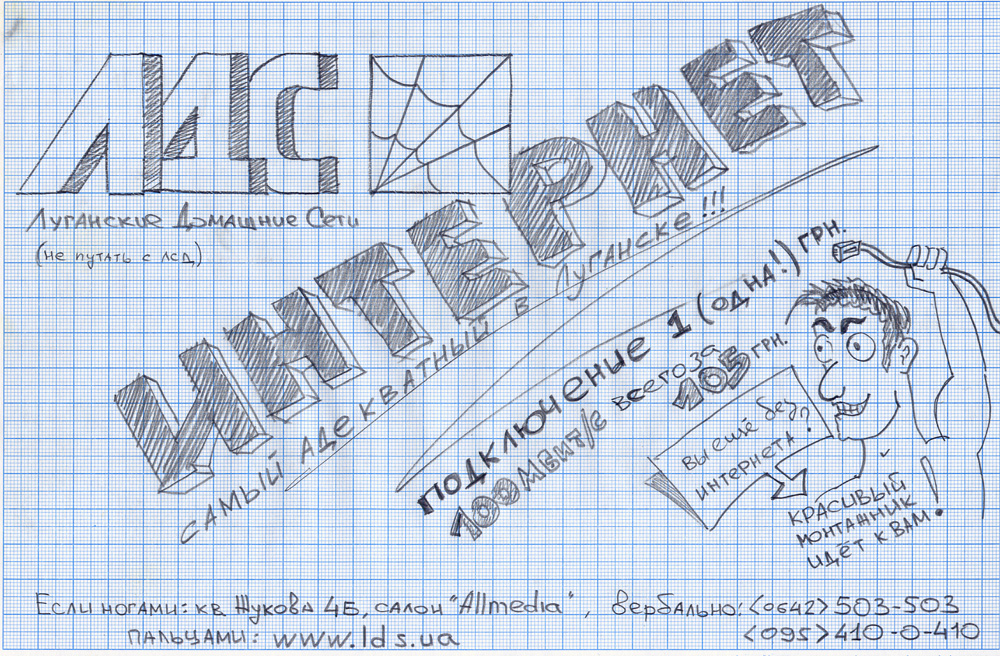 ЛДС
Луганские Домашние Сети
(не путать с ЛСД)
ИНТЕРНЕТ
САМЫЙ АДЕКВАТНЫЙ В ЛУГАНСКЕ!!!
ПОДКЛЮЧЕНИЕ 1 (ОДНА!) ГРН.
100МБИТ/С ВСЕГО ЗА 105 ГРН.
ВЫ ЕЩЕ БЕЗ
ИНТЕРНЕТА?
КРАСИВЫЙ
МОНТАЖНИК
ИДЁТ К ВАМ!
Если ногами: кв. Жукова 4Б, салон "Allmedia", вербально: <0642>503-503
пальцами: www.lds.ua <095>410-0-410